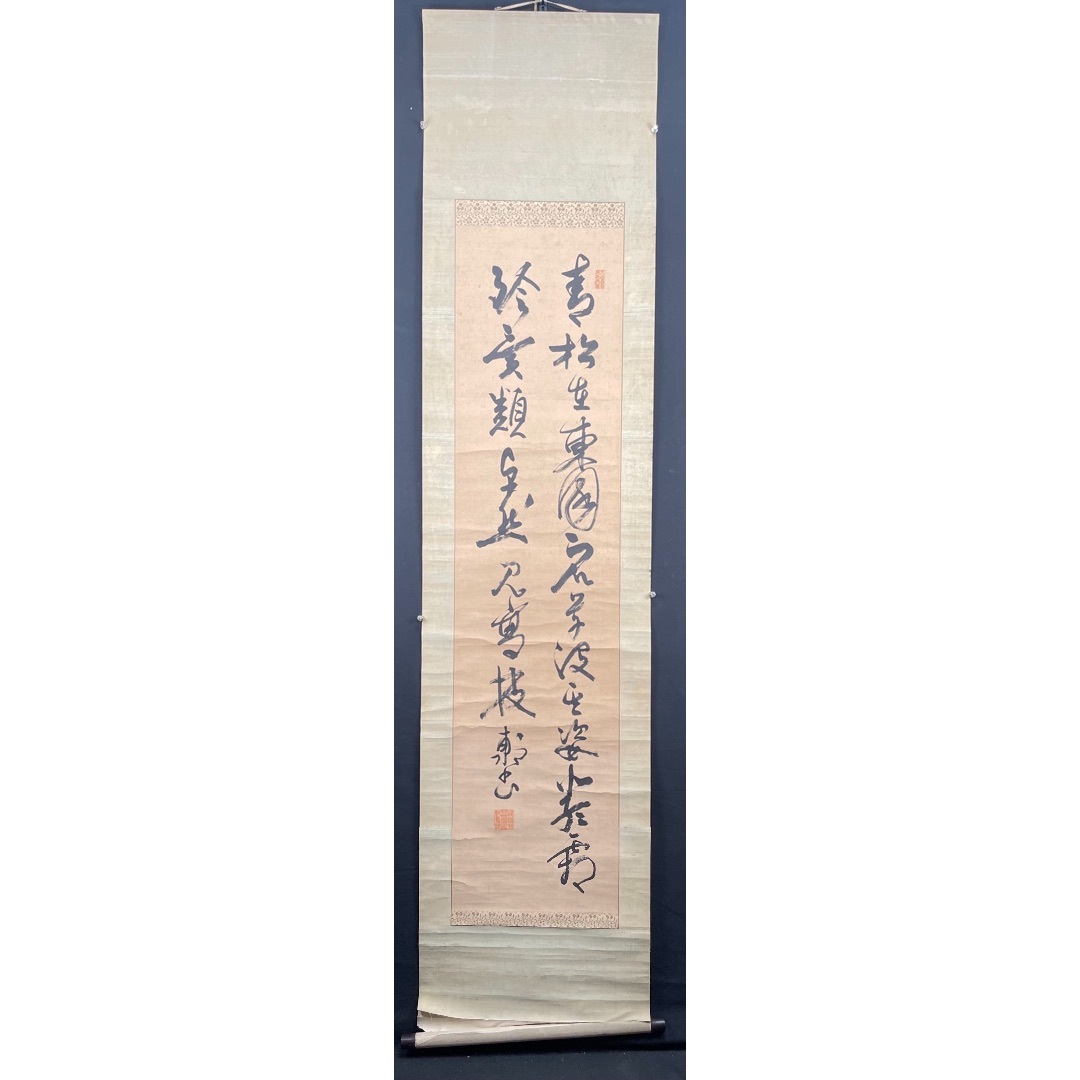 青松在東園衆草没其姿凝霜
殄異類卓然見高枝